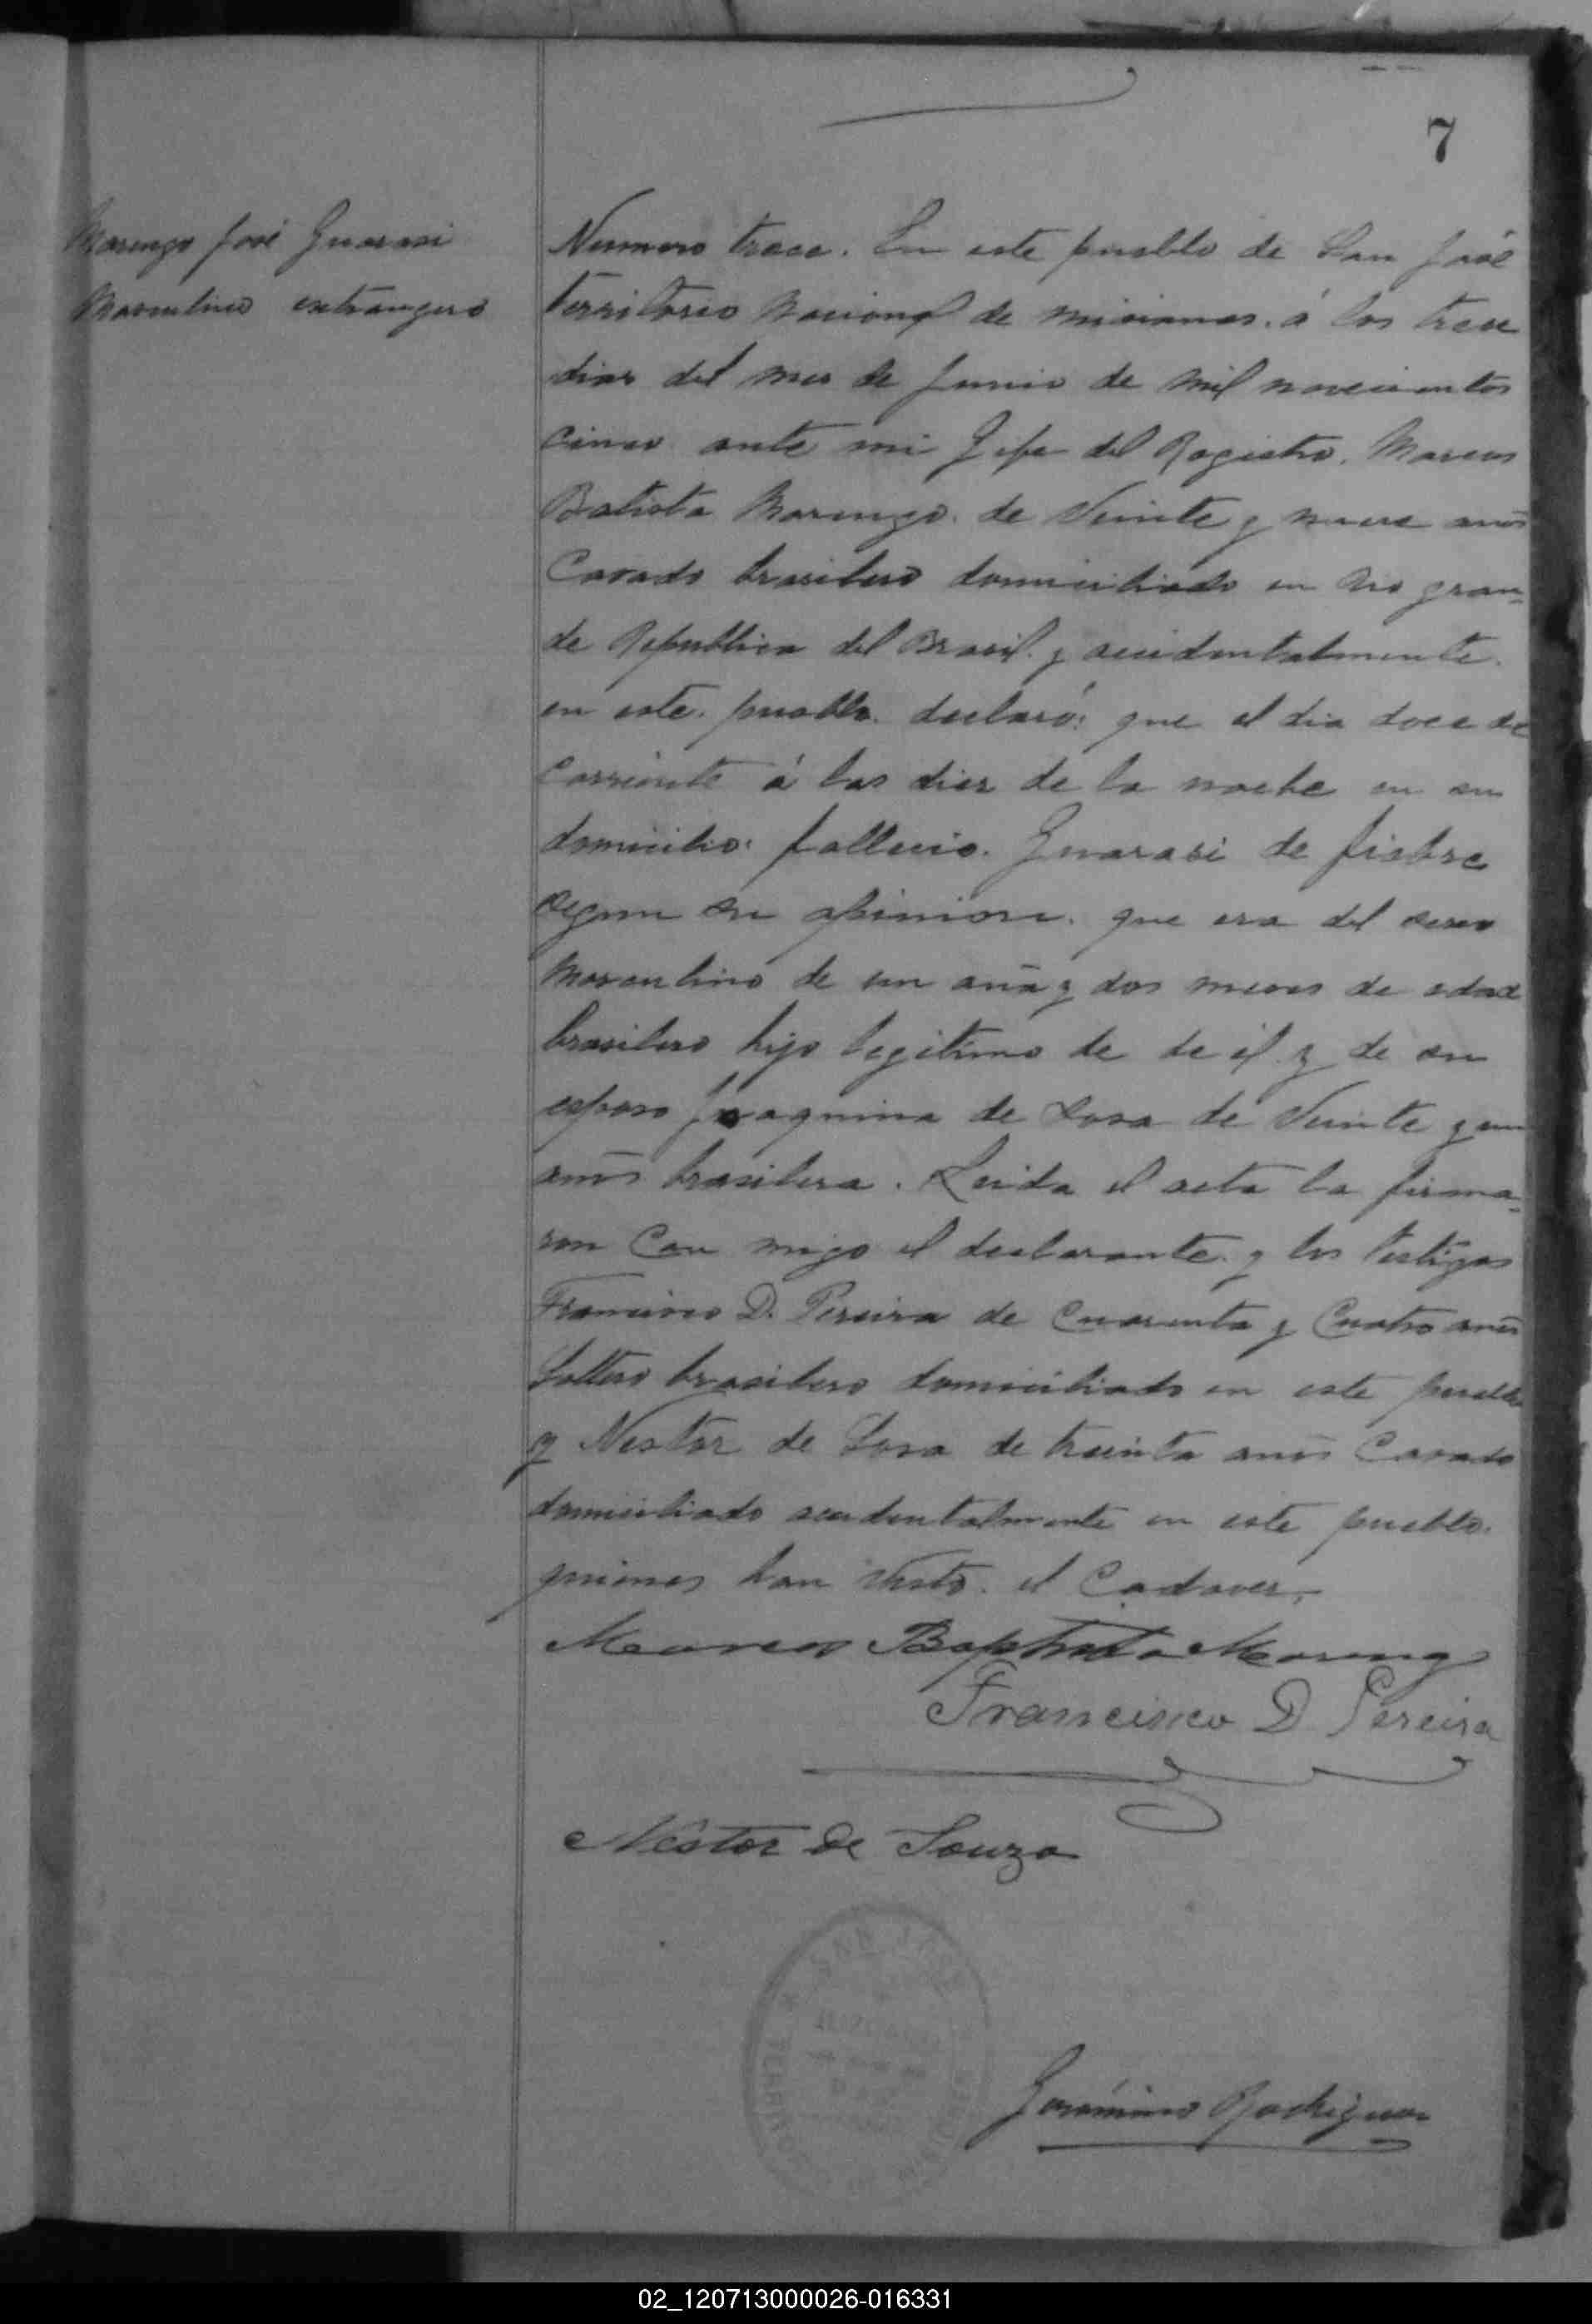 7
Marengo José Guarasi
Masculino extrangero
Numero trece. En este pueblo de San José
territorio Nacional de misiones. á los trece
dias del mes de Junio de mil novecientos
cinco ante mi Jefe del Registro. Marcos
Batista Marengo. de Veinte y nueve años
Casado brasilero domiciliado en Rio gran=
de Republica del Brasil. y accidentalmente.
en este. pueblo. declaró: que el dia doce de
corriente á las diez de la noche en su
domicilio: fallecio. Guarasi de fiebre
segun su opinion. que era del sexo
Masculino de un año y dos meses de edad
brasilero hijo legitimo de de él y de su
esposa Joaquina de Sosa de Veinte y un
años brasilera. Leida el acta la firma=
ron Con migo el declarante. y los testigos
Francisco D. Pereira de Cuarenta y Cuatro años
Soltero brasilero domiciliado en este pueblo
y Nestor de Sosa de treinta años Casado
domiciliado accidentalmente en este pueblo.
quienes han visto. el Cadaver.
Marcos Baptista Marengo
Francisco D. Pereira
Nestor de Souza
SAN JOSE
Gerónimo Rodriguez
02_120713000026-016331